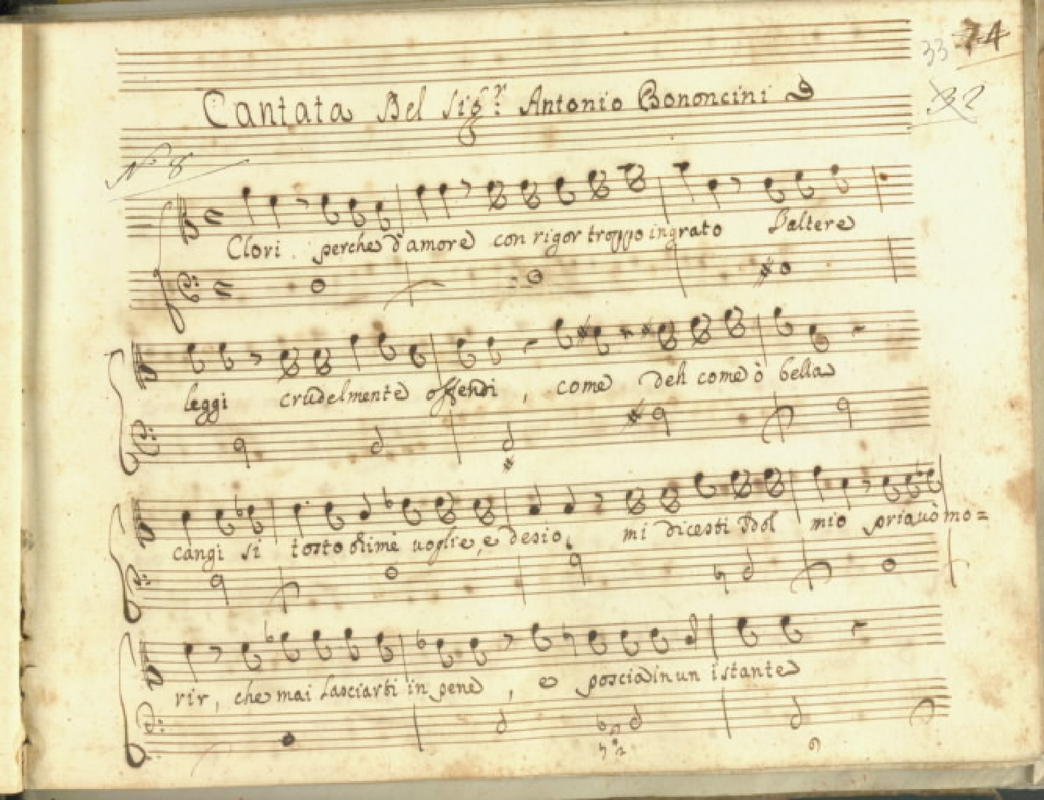 33 74
32
Cantata Del Sig.r Antonio Bononcini
N 8
Clori perche d'amore con rigor troppo ingrato L'altere
leggi crudelmente offendi, come deh come ò bella
cangi si tosto ohimè uoglie, e desio, mi dicesti Idol mio pria uò mo=
rir, che mai lasciarti in pene, e poscia in un istante